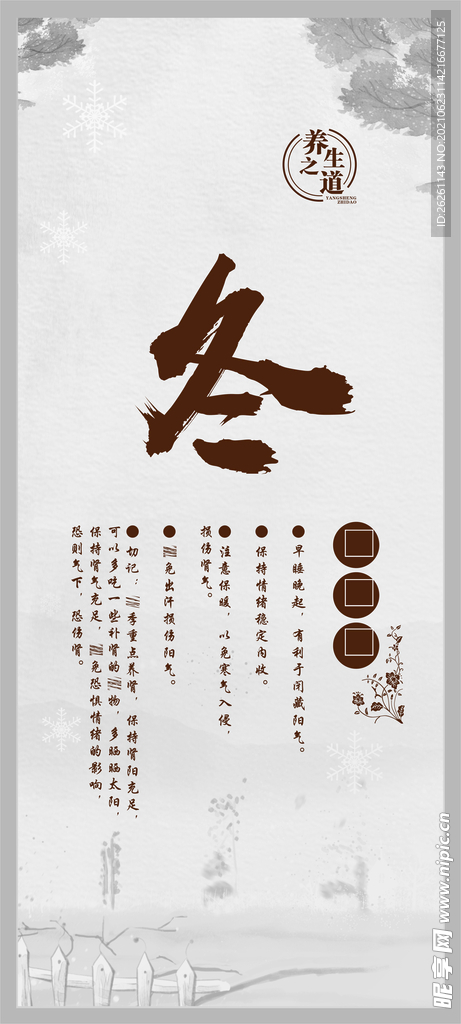 养生之道
YANGSHENG
ZHIDAO
冬
●早睡晚起，有利于闭藏阳气。
●保持情绪稳定内收。
●注意保暖，以免寒气入侵，
损伤肾气。
●免出汗损伤阳气。
●切记：季重点养肾，保持肾阳充足，
可以多吃一些补肾的物，多晒晒太阳，
保持肾气充足，免恐惧情绪的影响，
恐则气下，恐伤肾。
ID:26261143 NO:20210623114216677125
昵享网 www.nipic.cn